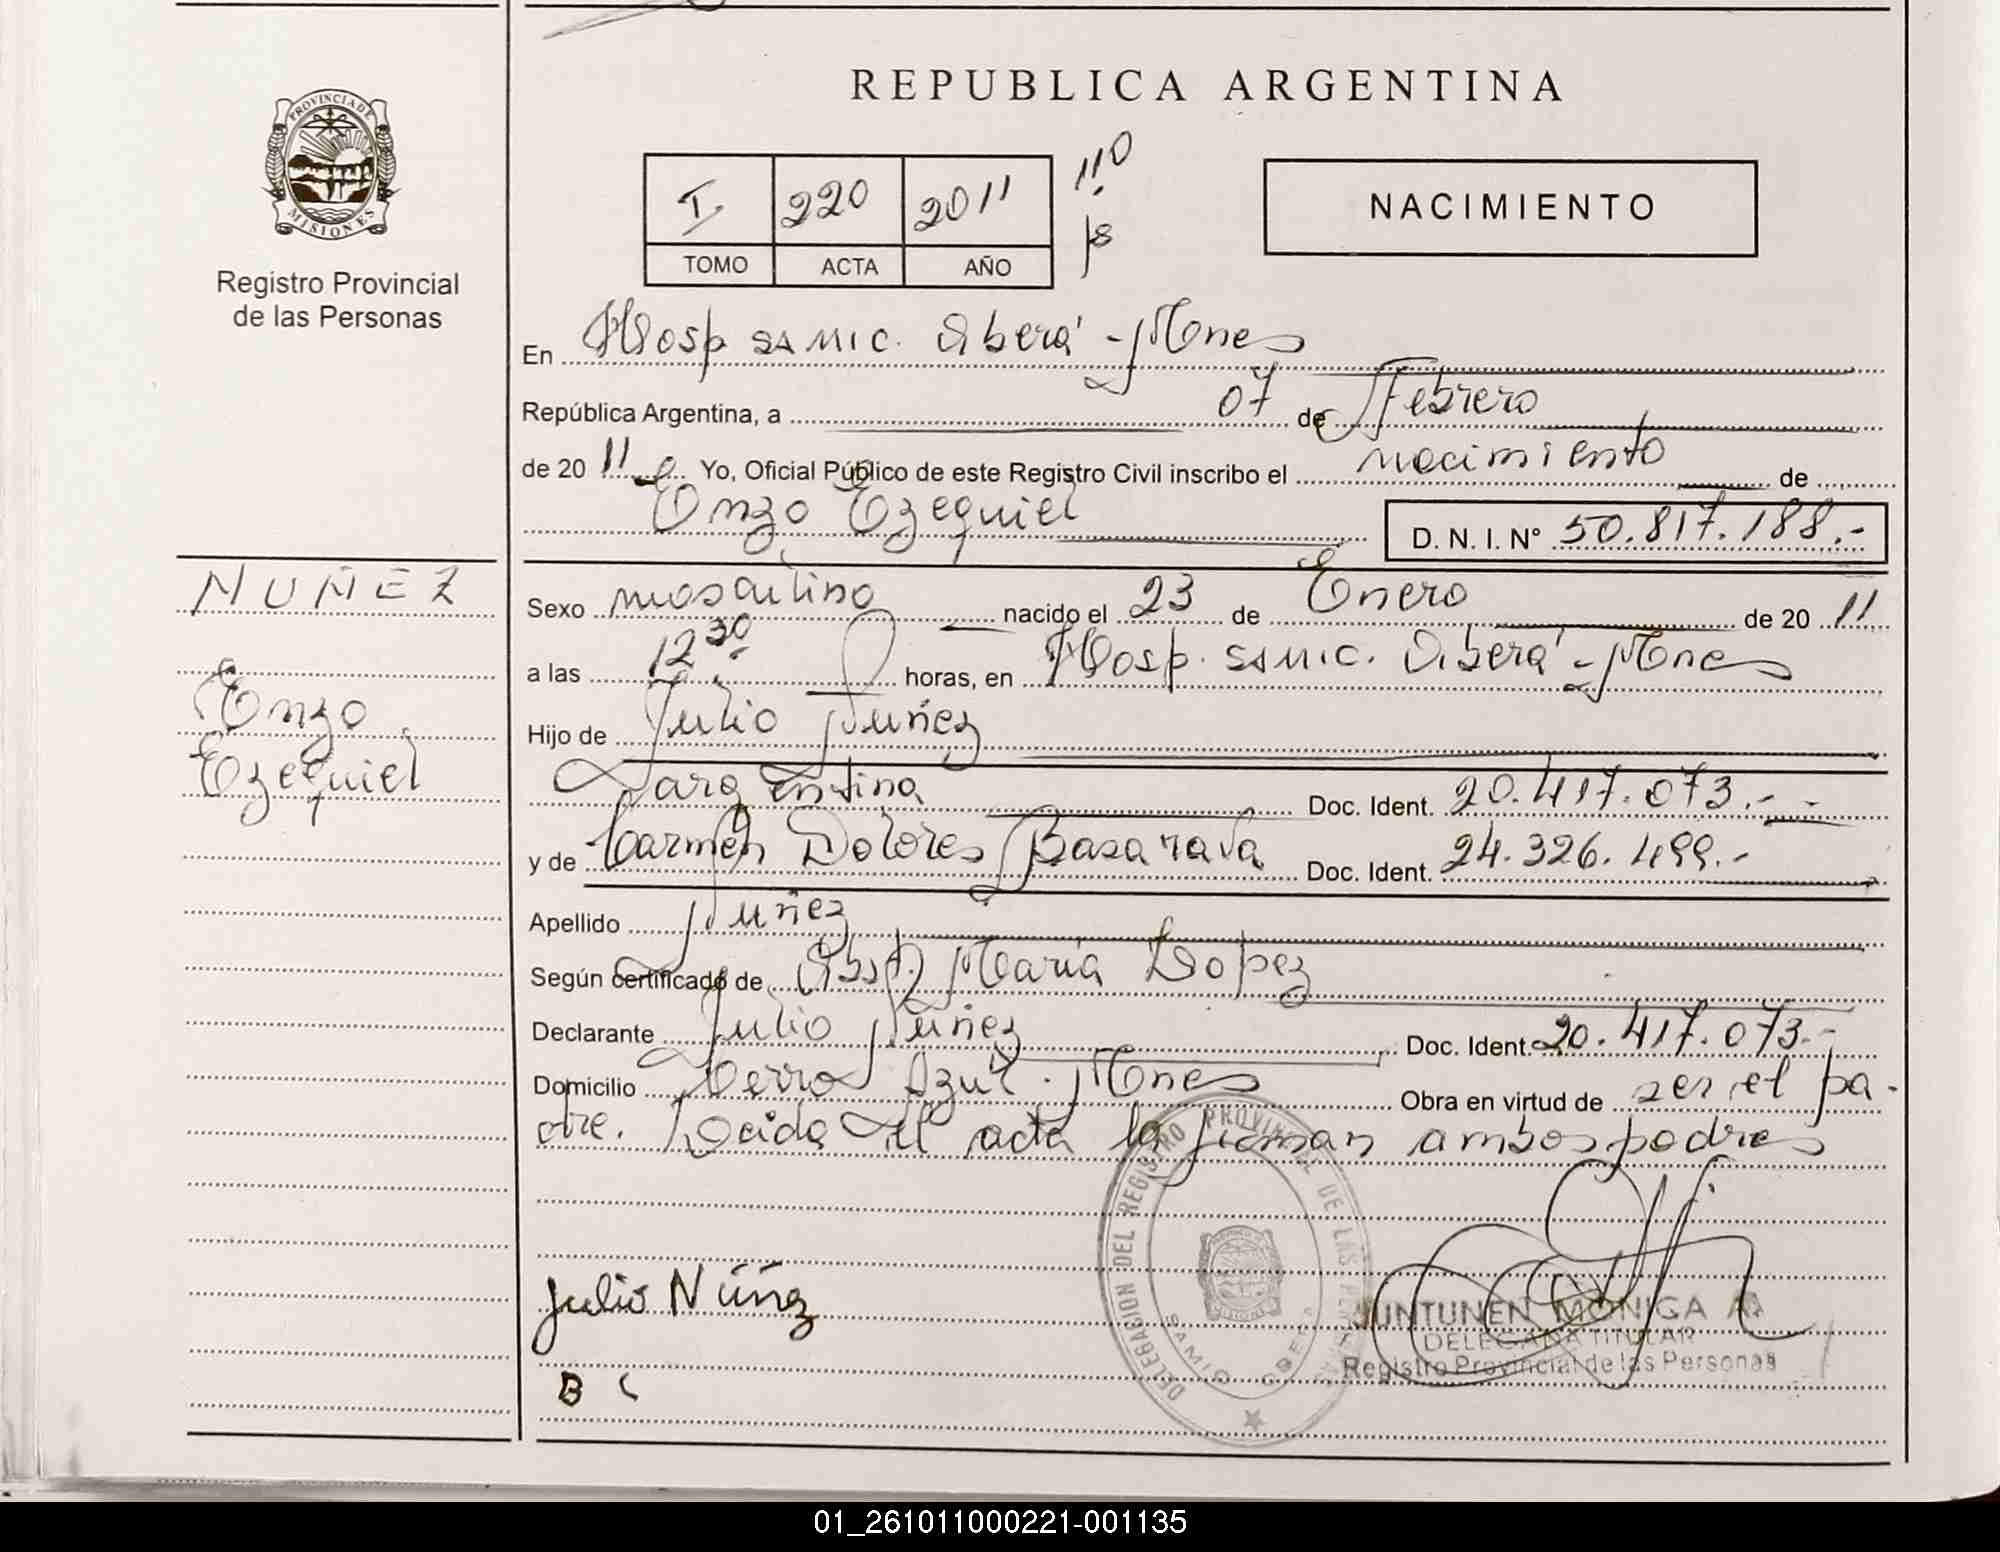 REPUBLICA ARGENTINA
PROVINCIA DE
MISIONES
Registro Provincial
de las Personas
I 220 2011 110
TOMO ACTA AÑO
NACIMIENTO
En Hosp SAMIC. Oberá - Mnes
República Argentina, a 07 de Febrero
de 20 11 Yo, Oficial Público de este Registro Civil inscribo el nacimiento de
Enzo Ezequiel D. N. I. N° 50.817.188.-
NUÑEZ
Enzo
Ezequiel
Sexo masculino nacido el 23 de Enero de 20 11
a las 12 30 horas, en Hosp. SAMIC. Oberá - Mnes
Hijo de Julio Nuñez
argentina Doc. Ident. 20.417.073.-
y de Carmen Dolores Basarava Doc. Ident. 24.326.499.-
Apellido Nuñez
Según certificado de Obst. María Lopez
Declarante Julio Nuñez Doc. Ident. 20.417.073.-
Domicilio Cerro Azul. Mnes Obra en virtud de ser el pa-
dre. Leida el acta la firman ambos padres
DELEGACION DEL REGISTRO PROVINCIAL DE LAS PERSONAS
SAMIC OBERA
Julio Núñez
JUNTUNEN MONICA A.
DELEGADA TITULAR
Registro Provincial de las Personas
B C
01_261011000221-001135